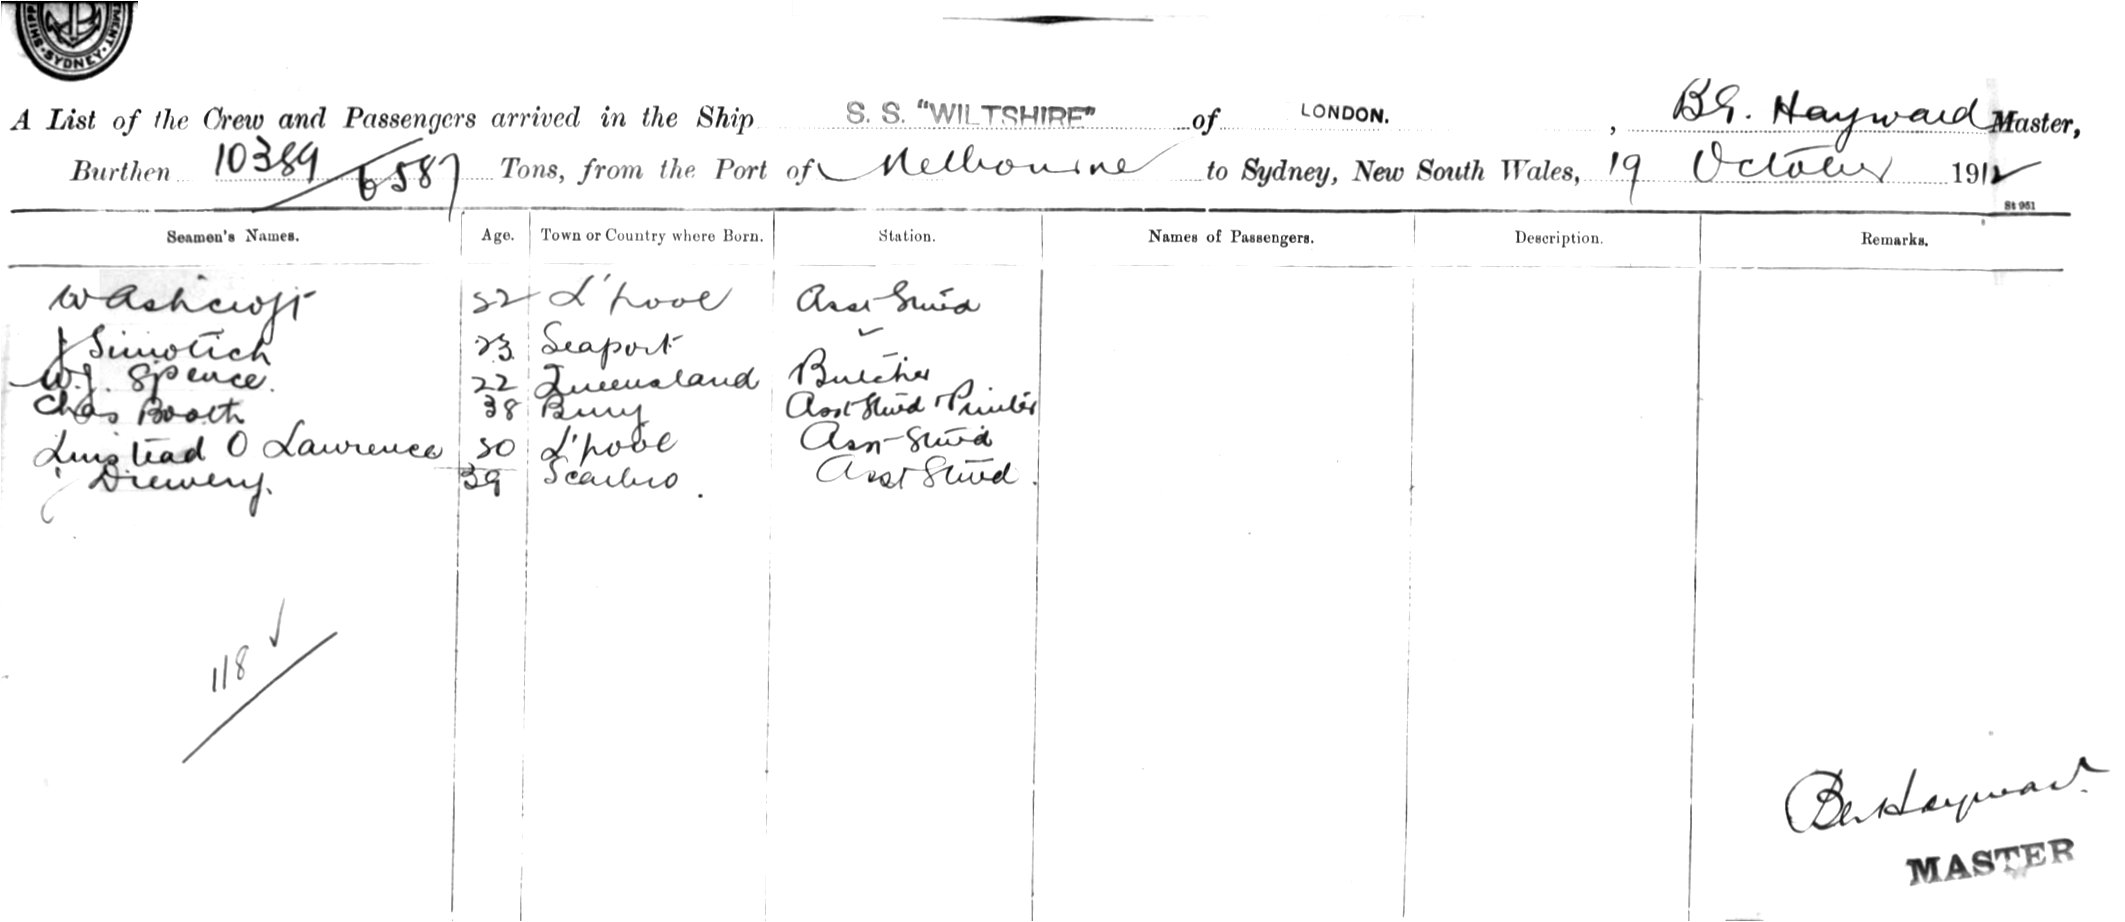 SHIPP MENT · SYDNEY ·
A List of the Crew and Passengers arrived in the Ship S. S. "WILTSHIRE" of LONDON. , B.G. Hayward Master,
Burthen 10389 / 6587 Tons, from the Port of Melbourne to Sydney, New South Wales, 19 October 1912
St 951
Seamen's Names. Age. Town or Country where Born. Station. Names of Passengers. Description. Remarks.
W Ashcroft L'pool Asst Stwd
J 23 Seaport "
W.J. Spence. 22 Queensland Butcher
Chas Booth 38 Bury Asst Stwd & Printer
Linstead O Lawrence L'pool Asst Stwd
Drewery. 39 Scarbro. Asst Stwd.
118 ✓
Hayward.
MASTER